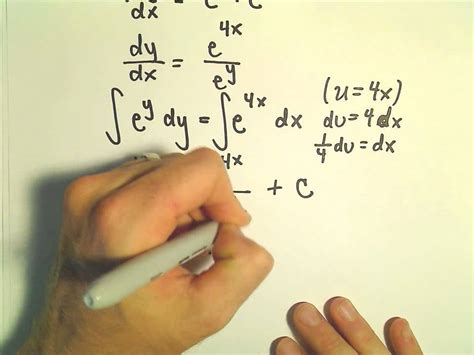 dy/dx = e^4x/e^y
∫e^y dy = ∫e^4x dx
(u=4x)
du=4dx
1/4 du=dx
4x + C